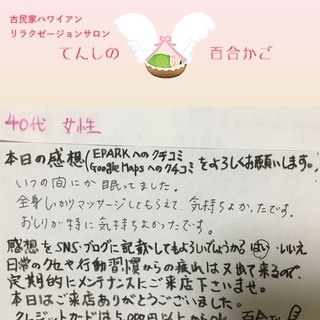 古民家ハワイアン
リラクゼーションサロン
てんしの 百合かご
40代 女性
本日の感想(EPARKへのクチコミ
Google Mapsへのクチコミをよろしくお願いします。
いつの間にか眠ってました。
全身しっかりマッサージしてもらえて、気持ちよかったです。
おしりが特に気持ちよかったです。
感想をSNS・ブログに記載してもよろしいでしょうか? はい・いいえ
日常のクセや行動習慣からの疲れは又出て来るので、
定期的にメンテナンスにご来店下さいませ。
本日はご来店ありがとうございました。
クレジットカードは5,000円以上から